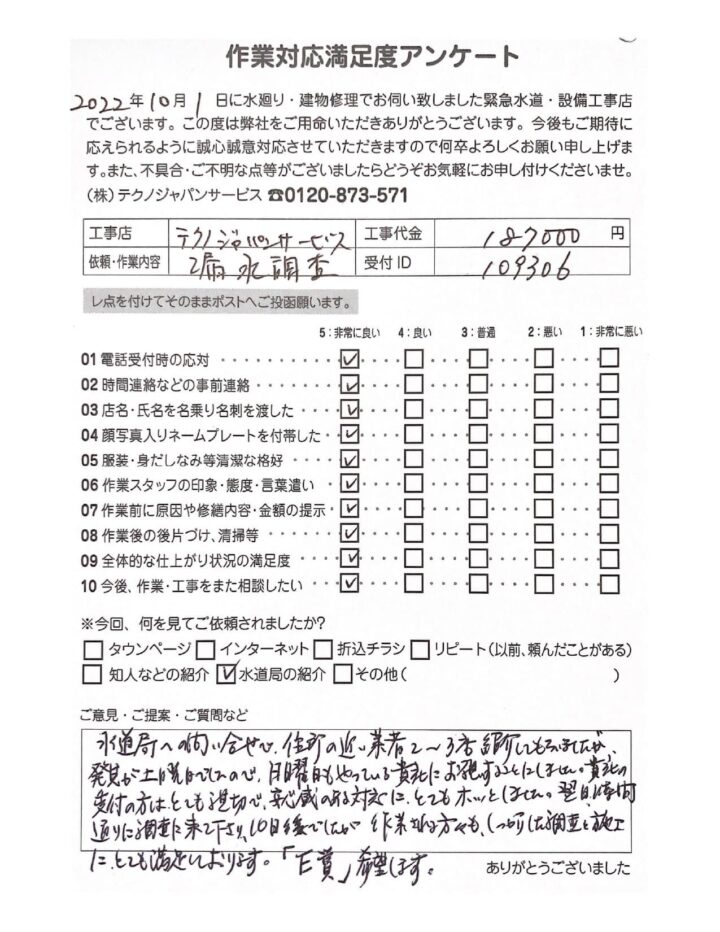 作業対応満足度アンケート
2022年10月1日に水廻り・建物修理でお伺い致しました緊急水道・設備工事店
でございます。この度は弊社をご用命いただきありがとうございます。今後もご期待に
応えられるように誠心誠意対応させていただきますので何卒よろしくお願い申し上げま
す。また、不具合・ご不明な点等がございましたらどうぞお気軽にお申し付けくださいませ。
(株)テクノジャパンサービス ☎0120-873-571
工事店 テクノジャパンサービス 工事代金 187000 円
依頼・作業内容 漏水調査 受付ID 109306
レ点を付けてそのままポストへご投函願います。
5:非常に良い 4:良い 3:普通 2:悪い 1:非常に悪い
01 電話受付時の応対
02 時間連絡などの事前連絡
03 店名・氏名を名乗り名刺を渡した
04 顔写真入りネームプレートを付帯した
05 服装・身だしなみ等清潔な格好
06 作業スタッフの印象・態度・言葉遣い
07 作業前に原因や修繕内容・金額の提示
08 作業後の後片づけ、清掃等
09 全体的な仕上がり状況の満足度
10 今後、作業・工事をまた相談したい
※今回、何を見てご依頼されましたか?
タウンページ インターネット 折込チラシ リピート(以前、頼んだことがある)
知人などの紹介 水道局の紹介 その他( )
ご意見・ご提案・ご質問など
水道局への問い合せで、住所の近い業者2～3者紹介してもらいましたが、
発見が土曜日でしたので、日曜日もやっている貴社にお願することにしました。貴社の
受付の方はとても親切で、安心感のある対応に、とてもホッとしました。翌日、時間
通りに調査に来て下さり、10日後でしたが 作業される方々も、しっかりした調査と施工
に、とても満足しております。 希望します。
ありがとうございました